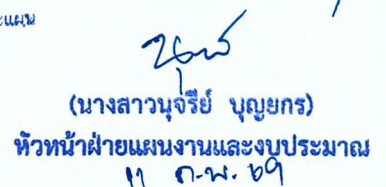 ะแผน
(นางสาวนุจรีย์ บุญยกร)
หัวหน้าฝ่ายแผนงานและงบประมาณ
11 ก.พ. 69